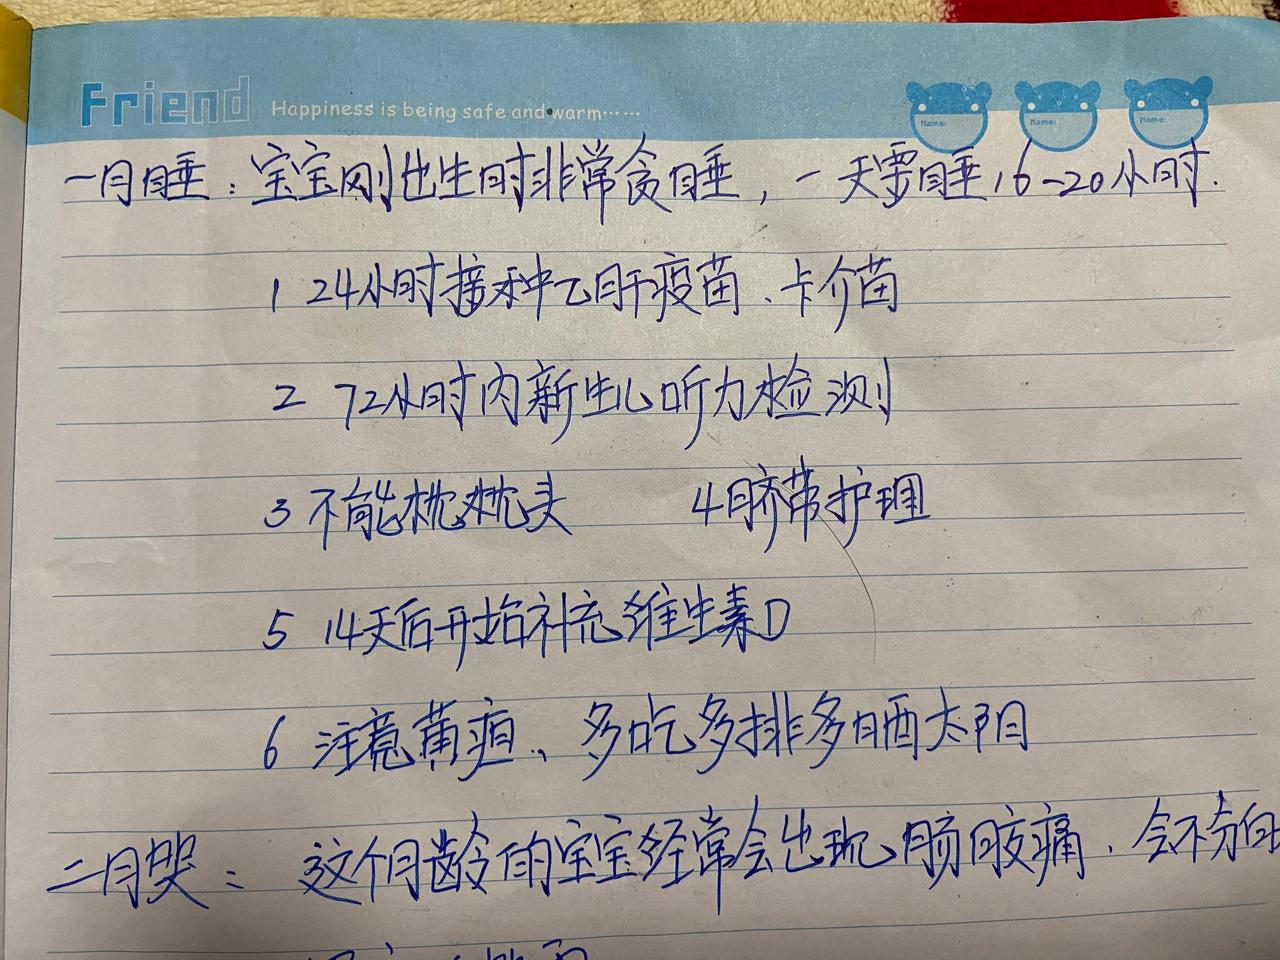 Friend Happiness is being safe and warm······
Name: Name: Name:
一月睡：宝宝刚出生时非常贪睡，一天要睡16-20小时.
1 24小时接种乙肝疫苗、卡介苗
2 72小时内新生儿听力检测
3 不能枕枕头 4脐带护理
5 14天后开始补充维生素D
6 注意黄疸、多吃多排多晒太阳
二月哭：这个月龄的宝宝经常会出现肠胶痛.会不分白